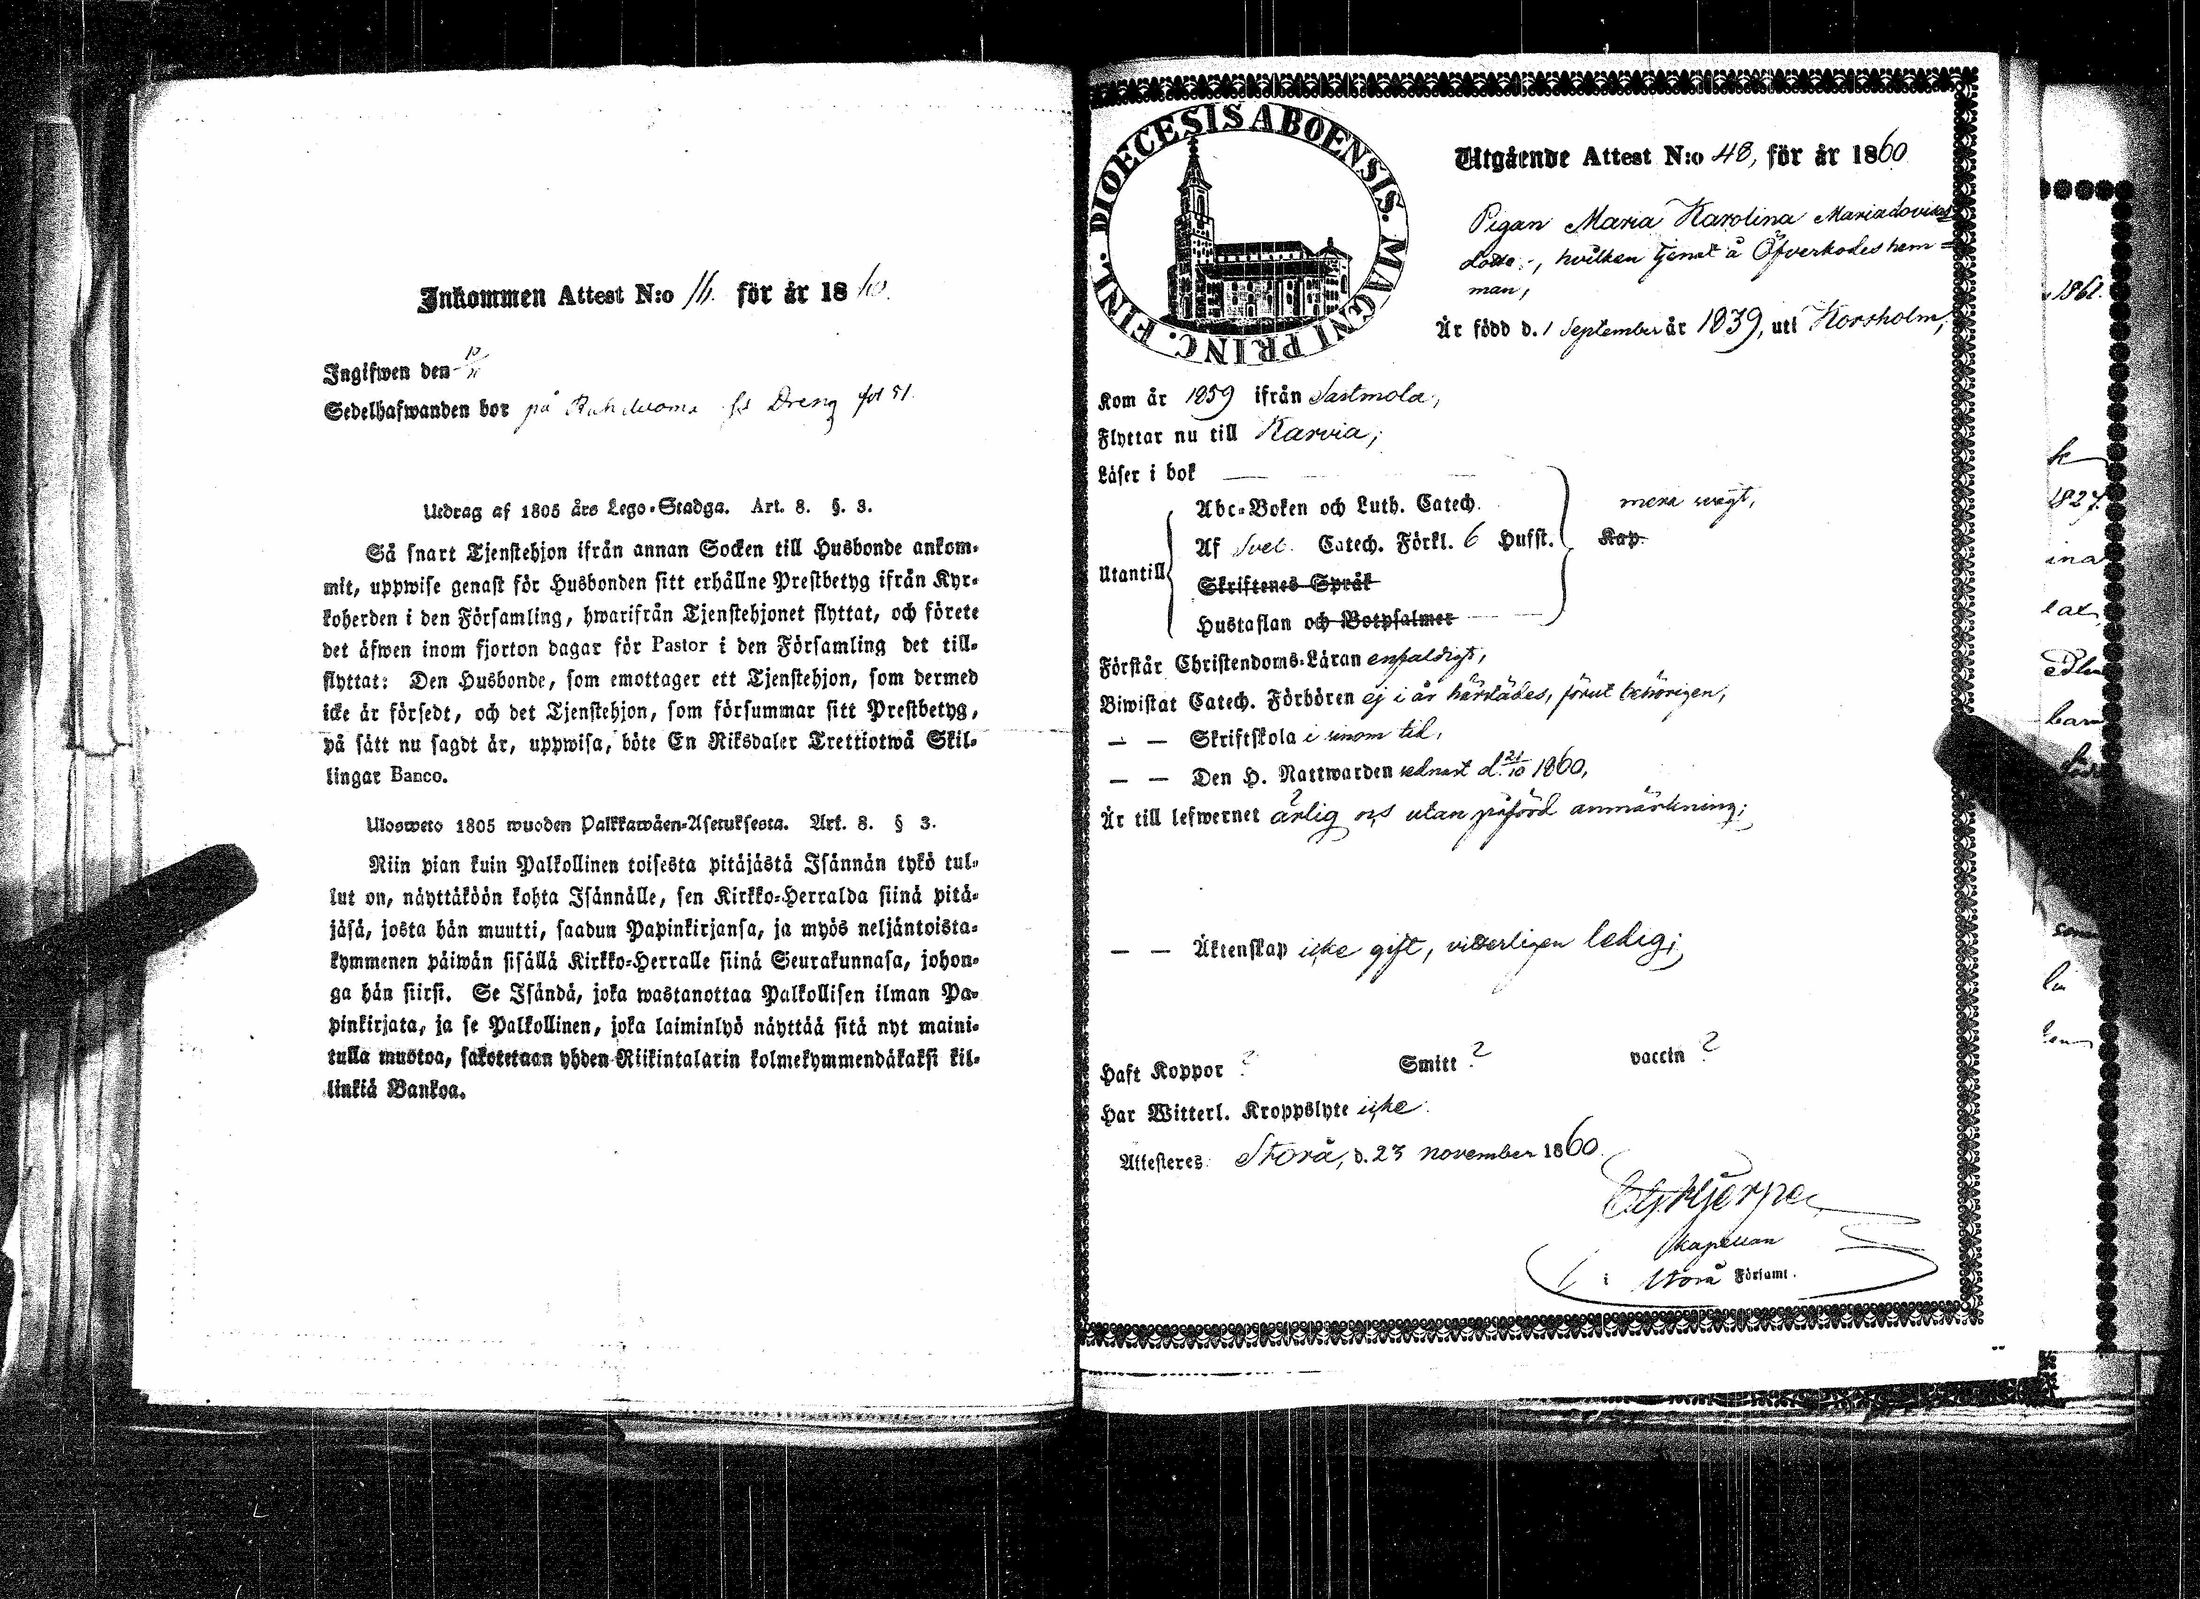 Inkommen Attest N:o 16. för år 1860.
Ingifwen den
Sedelhafwanden bor på Dreng fol 51.
Utdrag af 1805 års Lego-Stadga. Art. 8. §. 3.
Så snart Tjenstehjon ifrån annan Socken till Husbonde ankom-
mit, uppwise genast för Husbonden sitt erhållne Prestbetyg ifrån Kyr-
koherden i den Församling, hwarifrån Tjenstehjonet flyttat, och förete
det äfwen inom fjorton dagar för Pastor i den Församling det till-
flyttat: Den Husbonde, som emottager ett Tjenstehjon, som dermed
icke är försedt, och det Tjenstehjon, som försummar sitt Prestbetyg,
på sätt nu sagdt är, uppwisa, böte En Riksdaler Trettiotwå Skil-
lingar Banco.
Ulosweto 1805 wuoden Palkkawäen-Asetuksesta. Art. 8. § 3.
Niin pian kuin Palkollinen toisesta pitäjästä Isännän tykö tul-
lut on, näyttäköön kohta Isännälle, sen Kirkko-Herralda siinä pitä-
jäsä, josta hän muutti, saadun Papinkirjansa, ja myös neljäntoista-
kymmenen päiwän sisällä Kirkko-Herralle siinä Seurakunnasa, johon-
ga hän siirsi. Se Isändä, joka wastanottaa Palkollisen ilman Pa-
pinkirjata, ja se Palkollinen, joka laiminlyö näyttää sitä nyt maini-
tulla muotoa, sakotetaan yhden Riikintalarin kolmekymmendäkaksi kil-
linkiä Bankoa.
DIOECESIS ABOENSIS. MAGNI PRINC. FINL.
Utgående Attest N:o 48, för år 1860
Pigan Maria Karolina Mariadovitas
dotter, hvilken tjenat å Öfverkodes hem=
man,
Är född d. 1 September år 1839, uti Korsholm,
Kom år 1859 ifrån Sastmola,
Flyttar nu till Karvia;
Läser i bok
Abc-Boken och Luth. Catech. mera svagt,
Af Sveb. Catech. Förkl. 6 Hufst. Kap.
Utantill
Skriftenes Språk
Hustaflan och Botpsalmer
Förstår Christendoms-Läran enfaldigt,
Biwistat Catech. Förhören ej i år härstädes, förut behörigen,
— — Skriftskola i sinom tid,
— — Den H. Nattwarden sednast d. 21/10 1860,
Är till lefwernet ärlig och utan påförd anmärkning;
— — Äktenskap icke gift, vitterligen ledig;
Haft Koppor ? Smitt ? vaccin ?
Har Witterl. Kroppslyte icke.
Attesteres: Storå, d. 23 november 1860.
Hjerpe
Kapellan
i Storå Församl.
1861.
1827.